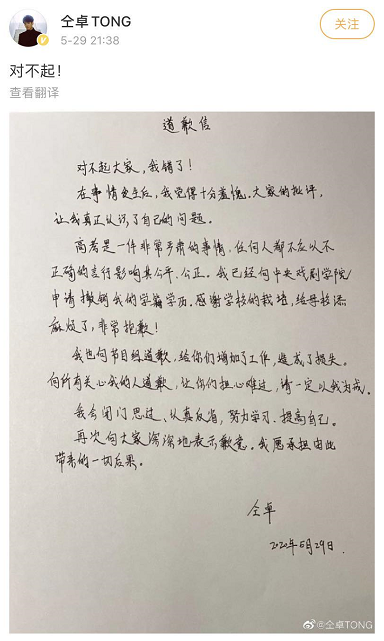 仝卓TONG
5-29 21:38
关注
对不起！
查看翻译
道歉信
对不起大家，我错了！
在事情发生后，我觉得十分羞愧。大家的批评，
让我真正认识了自己的问题。
高考是一件非常严肃的事情，任何人都不应以不
正确的言行影响其公平、公正。我已经向中央戏剧学院
申请撤销我的学籍学历。感谢学校的栽培，给母校添
麻烦了，非常抱歉！
我也向节目组道歉，给你们增加了工作，造成了损失。
向所有关心我的人道歉，让你们担心难过，请一定以我为戒。
我会闭门思过、认真反省，努力学习，提高自己。
再次向大家深深地表示歉意。我愿承担由此
带来的一切后果。
仝卓
2020年5月29日.
@仝卓TONG